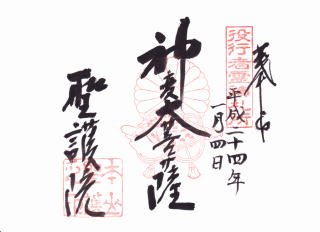 奉拝
役行者霊蹟札所
平成二十四年
一月四日
神変大菩薩
聖護院